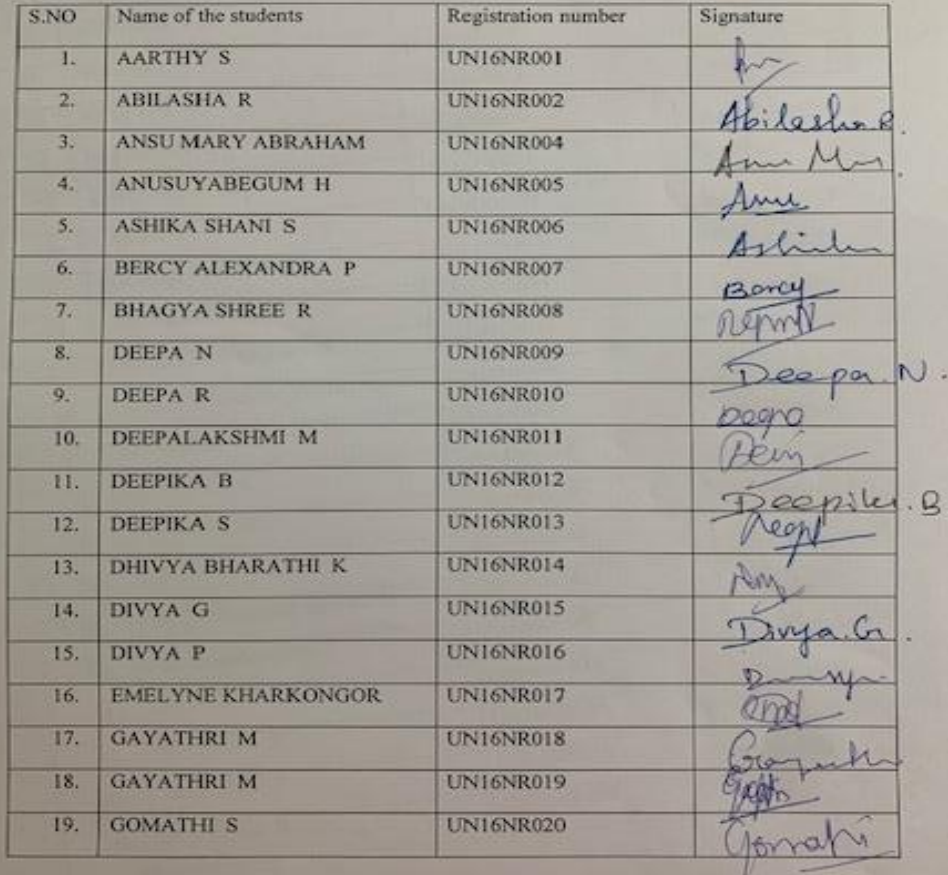 S.NO Name of the students Registration number Signature
1. AARTHY S UN16NR001
2. ABILASHA R UN16NR002 Abilasha.R.
3. ANSU MARY ABRAHAM UN16NR004
4. ANUSUYABEGUM H UN16NR005 Anu
5. ASHIKA SHANI S UN16NR006
6. BERCY ALEXANDRA P UN16NR007 Bercy
7. BHAGYA SHREE R UN16NR008
8. DEEPA N UN16NR009 Deepa.N.
9. DEEPA R UN16NR010 Deepa
10. DEEPALAKSHMI M UN16NR011
11. DEEPIKA B UN16NR012 Deepika.B
12. DEEPIKA S UN16NR013
13. DHIVYA BHARATHI K UN16NR014
14. DIVYA G UN16NR015 Divya.G.
15. DIVYA P UN16NR016
16. EMELYNE KHARKONGOR UN16NR017
17. GAYATHRI M UN16NR018
18. GAYATHRI M UN16NR019
19. GOMATHI S UN16NR020 Gomathi